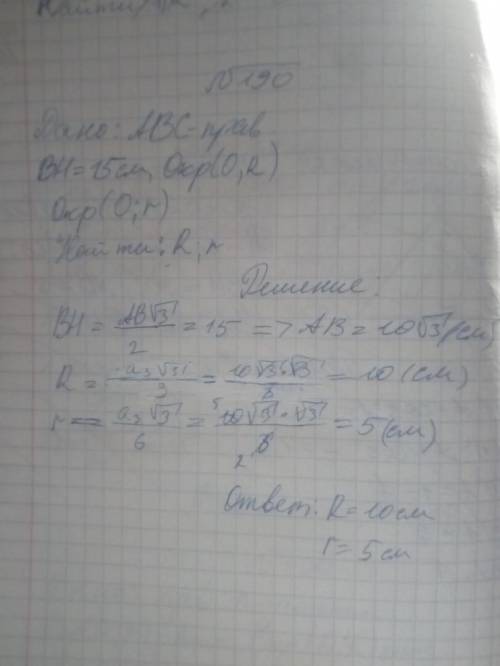 №190
Дано: ABC-прав
BH=15см, Окр(O,R)
Окр(O;r)
Найти: R, r
Решение:
BH = AB√3/2 = 15 => AB = 10√3(см)
R = a₃√3/3 = 10√3·√3/3 = 10 (см)
r = a₃√3/6 = 10√3·√3/6 = 5(см)
Ответ: R=10см
r=5см